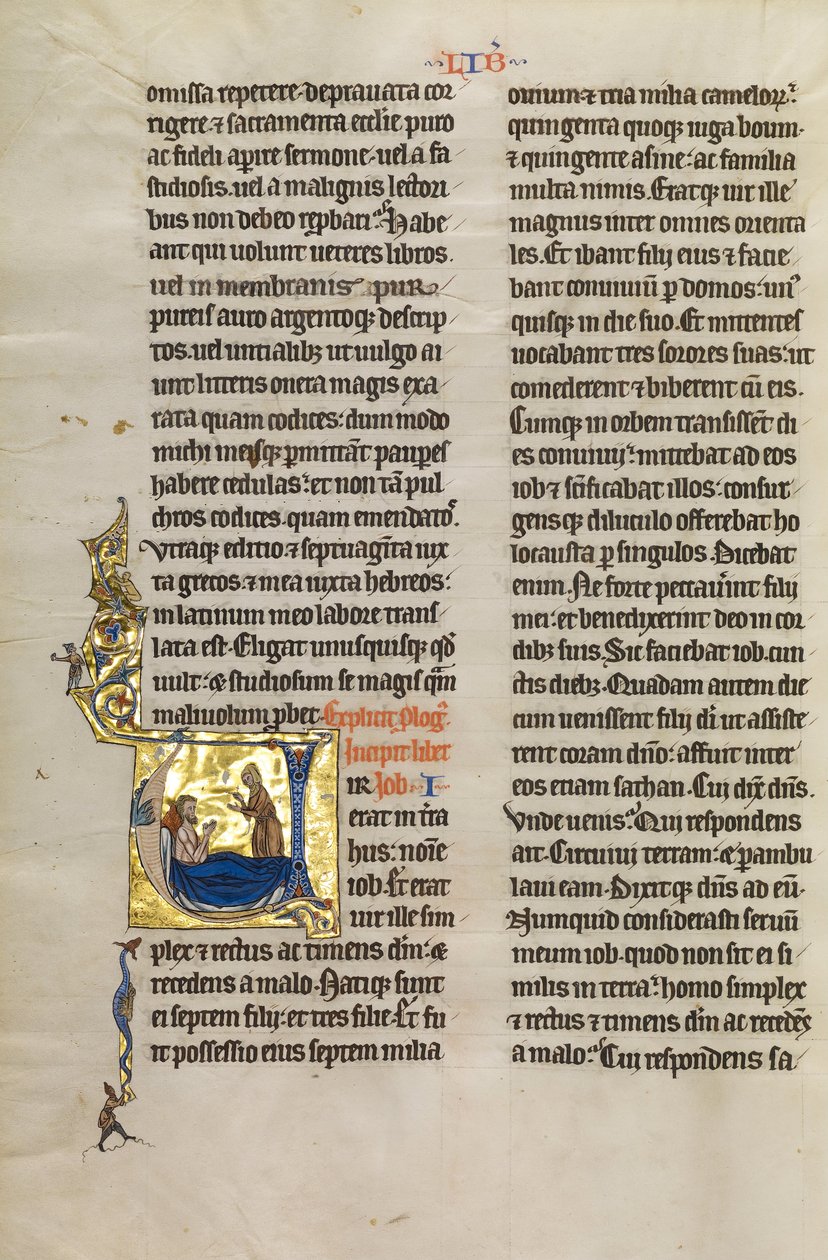 LIB̃
omissa repetere. deprauata cor
rigere. ⁊ sacramenta ecclie puro
ac fideli apire sermone. uel a fa
stidiosis. uel a malignis lectori
bus non debeo repbari. Habe
ant qui uolunt ueteres libros.
uel in membranis pur
pureis auro argentoqꝫ descrip
tos. uel untialibꝫ ut uulgo ai
unt litteris onera magis exa
rata quam codices: dum modo
michi meisqꝫ pmittãt paupes
habere cedulas: et non tã pul
chros codices. quam emendatos.
Vtraqꝫ editio. ⁊ septuagĩta iux
ta grecos. ⁊ mea iuxta hebreos:
in latinum meo labore trans
lata est. Eligat unusquisqꝫ qd̃
uult: ⁊ studiosum se magis qm̃
maliuolum pbet. Explicit plog9.
Incipit liber
VIR Job. I
erat in tr̃a
hus: noĩe
iob. Et erat
uir ille sim
plex ⁊ rectus ac timens dm̃: ⁊
recedens a malo. Natiqꝫ sunt
ei septem filij: et tres filie. Et fu
it possessio eius septem milia
ouium. ⁊ tria milia cameloꝝ:
quingenta quoqꝫ iuga boum.
⁊ quingente asine: ac familia
multa nimis. Eratqꝫ uir ille
magnus inter omnes orienta
les. Et ibant filij eius ⁊ facie
bant conuiuiũ p domos: un9
quisqꝫ in die suo. Et mittentes
uocabant tres sorores suas: ut
comederent ⁊ biberent cũ eis.
Cumqꝫ in orbem transissẽt di
es conuiuij: mittebat ad eos
iob ⁊ sc̃ificabat illos: consur
gensqꝫ diluculo offerebat ho
locausta p singulos. Dicebat
enim. Ne forte peccauĩnt filij
mei: et benedixerint deo in cor
dibꝫ suis. Sic faciebat iob. cun
ctis diebꝫ. Quadam autem die
cum uenissent filij di ut assiste
rent coram dño: affuit inter
eos etiam sathan. Cui dix̃ dñs.
Vnde uenis. Qui respondens
ait. Circuiui terram: ⁊ pambu
laui eam. Dixitqꝫ dñs ad eũ.
Numquid considerasti seruũ
meum iob. quod non sit ei si
milis in terra: homo simplex
⁊ rectus ⁊ timens dm̃ ac recedẽs
a malo. Cui respondens sa